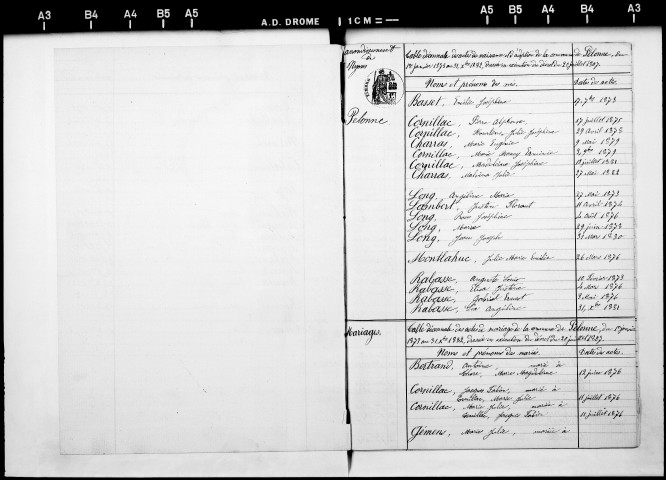 A3 B4 A4 B5 A5 A.D. DROME 1 CM A5 B5 A4 B4 A3
arrondissement
de
Nyons
Table décennale des actes de naissance et d'adoption de la commune de Pelonne, du
1er janvier 1873 au 31 Xbre 1882, dressée en exécution du décret du 20 juillet 1807.
Noms et prénoms des nés. Dates des actes.
Pelonne
Basset, Emilie Joséphine 1873
Cornillac, Pierre Alphonse 17 juillet 1875
Cornillac, Julie Joséphine 29 Avril 1878
Charras, Marie Eugénie 9 Mai 1879
Cornillac, Marie 1879
Cornillac, Madeleine Joséphine juillet 1881
Charras, Julie 27 Mai 1882
Long, Angéline Marie 27 Mai 1873
Lambert, Justin Florent 11 Avril 1874
Long, Joséphine 4 Août 1876
Long, Marie 29 juin 1878
Long, Joseph 31 Mars 1880
Montlahuc, Julie Marie Emilie 26 Mars 1876
Rabasse, Auguste Louis 10 Février 1873
Rabasse, Justine 4 Mars 1876
Rabasse, Gabriel Ernest 8 Mai 1876
Rabasse, Angéline 31 Xbre 1881
Mariages.
Table décennale des actes de mariage de la commune de Pelonne, du 1er janvier
1873 au 31 Xbre 1882, dressée en exécution du décret du 20 juillet 1807.
Noms et prénoms des mariés. Dates des actes.
Bertrand, Antoine, marié à
Marie Magdeleine 12 juin 1876
Cornillac, Jacques Fabien, marié à
Cornillac, Marie Julie 11 juillet 1876
Cornillac, Marie Julie, mariée à
Cornillac, Jacques Fabien 11 juillet 1876
Gémens, Marie Julie, mariée à